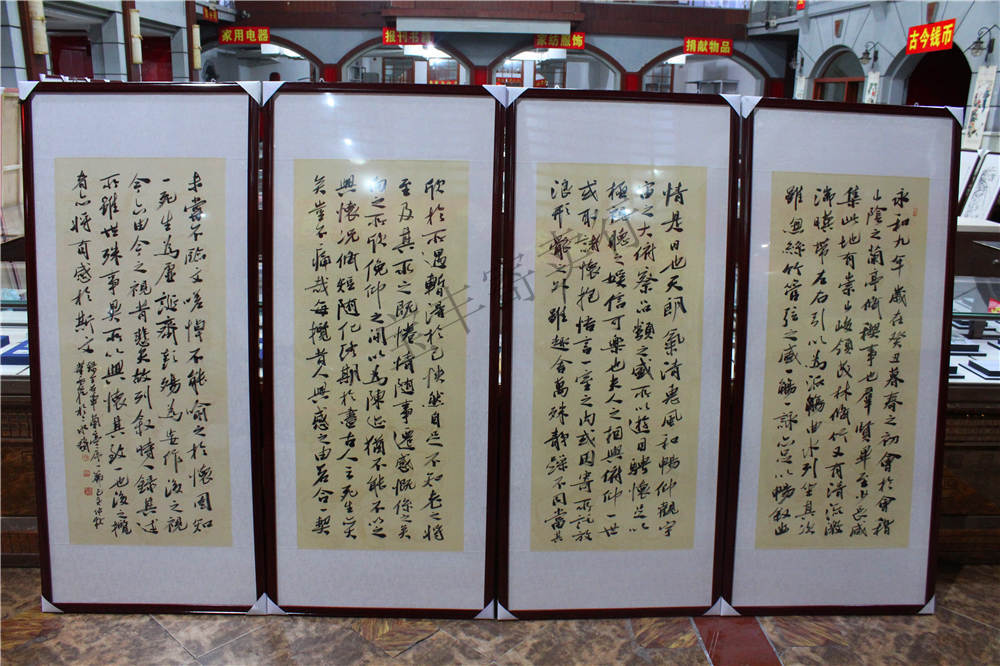 家用电器
报刊书籍
家纺服饰
捐献物品
古今钱币
永和九年歲在癸丑暮春之初會於會稽
山陰之蘭亭修禊事也群賢畢至少長咸
集此地有崇山峻領茂林修竹又有清流激
湍暎帶左右引以為流觴曲水列坐其次
雖無絲竹管弦之盛一觴一詠亦足以暢敘幽
情是日也天朗氣清惠風和暢仰觀宇
宙之大俯察品類之盛所以遊目騁懷足以
極視聽之娛信可樂也夫人之相與俯仰一世
或取諸懷抱悟言一室之內或因寄所託放
浪形骸之外雖趣舍萬殊靜躁不同當其
欣於所遇暫得於己快然自足不知老之將
至及其所之既惓情隨事遷感慨係之矣
向之所欣俛仰之間以為陳迹猶不能不以之
興懷況修短隨化終期於盡古人云死生亦大
矣豈不痛哉每攬昔人興感之由若合一契
未嘗不臨文嗟悼不能喻之於懷固知
一死生為虛誕齊彭殤為妄作後之視
今亦由今之視昔悲夫故列敘時人錄其述
所雖世殊事異所以興懷其致一也後之攬
者亦將有感於斯文
王右軍蘭亭序一篇